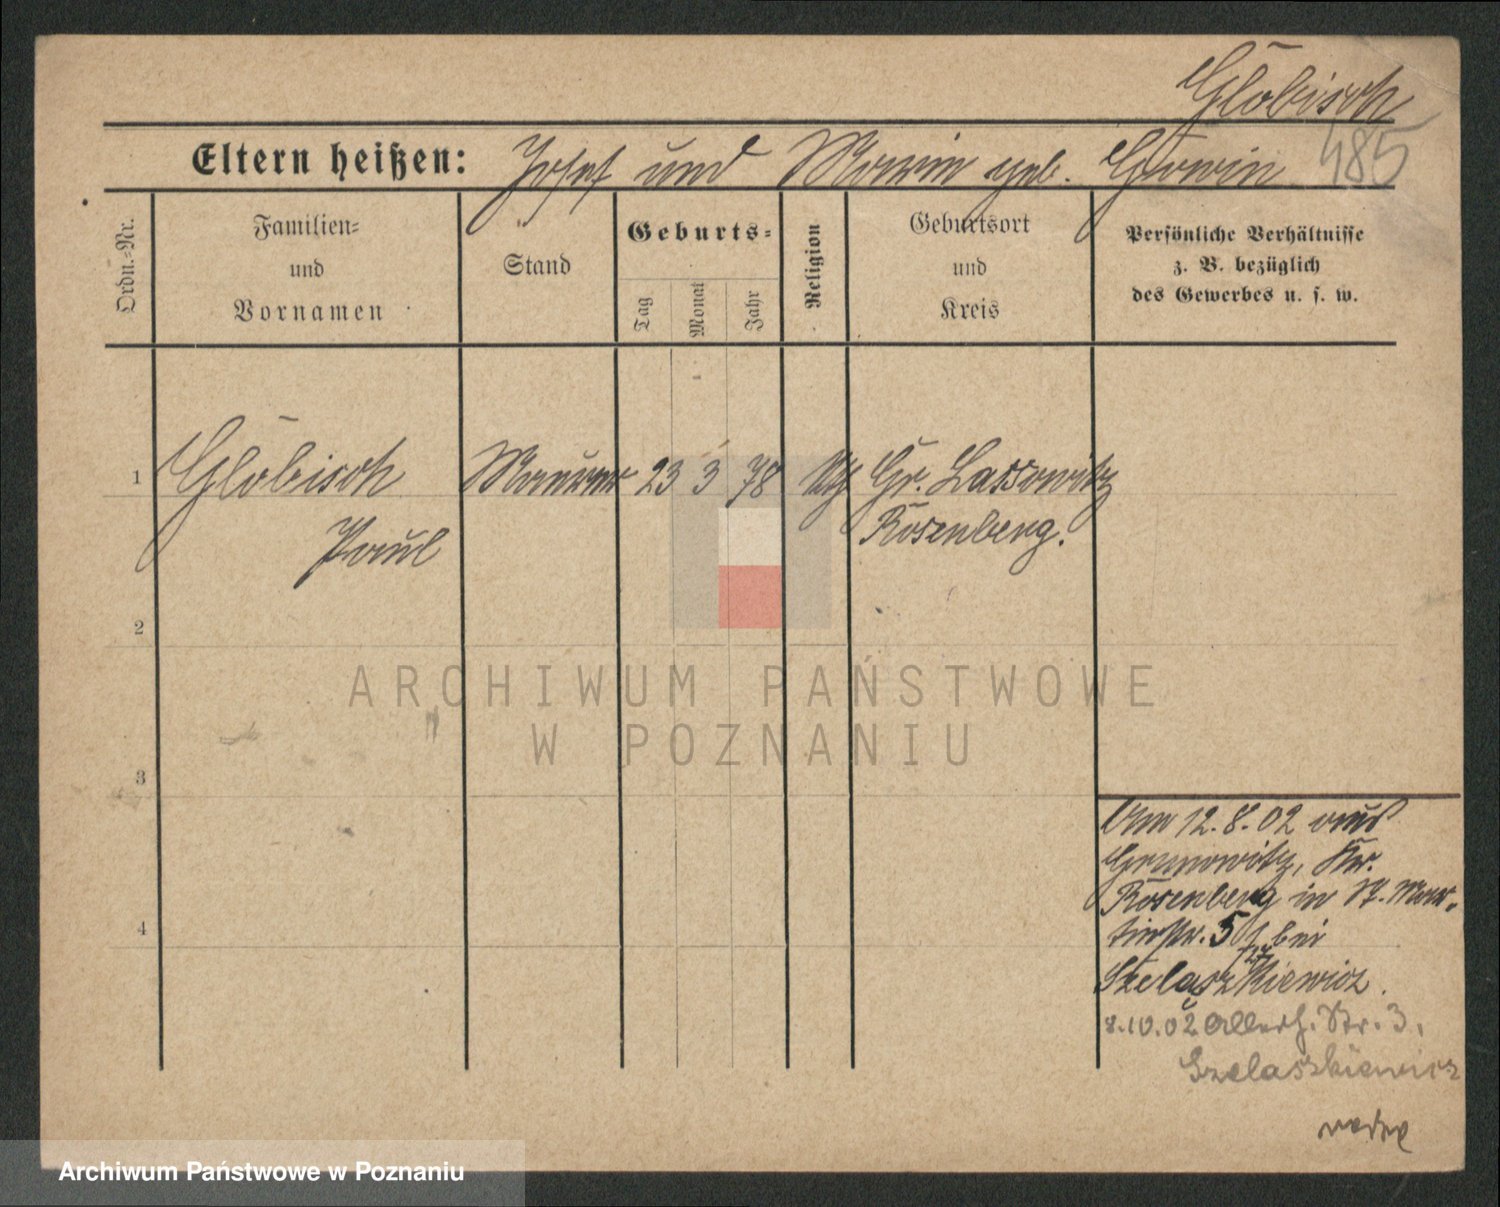 Globisch
485
Eltern heißen: Josef und Marie geb.
Ordn.-Nr.
Familien-
und
Vornamen
Stand
Geburts-
Tag
Monat
Jahr
Religion
Geburtsort
und
Kreis
Persönliche Verhältnisse
z. B. bezüglich
des Gewerbes u. s. w.
1 Globisch Maurer 23 3 78 Gr. Lassowitz
Paul Rosenberg.
2
ARCHIWUM PAŃSTWOWE
W POZNANIU
3
Am 12.8.02 aus
Kr.
Rosenberg in St. Mar-
tinstr. 5 bei
4
Szelaszkiewicz.
8.10.02 Str. 3,
Szelaszkiewicz
Archiwum Państwowe w Poznaniu